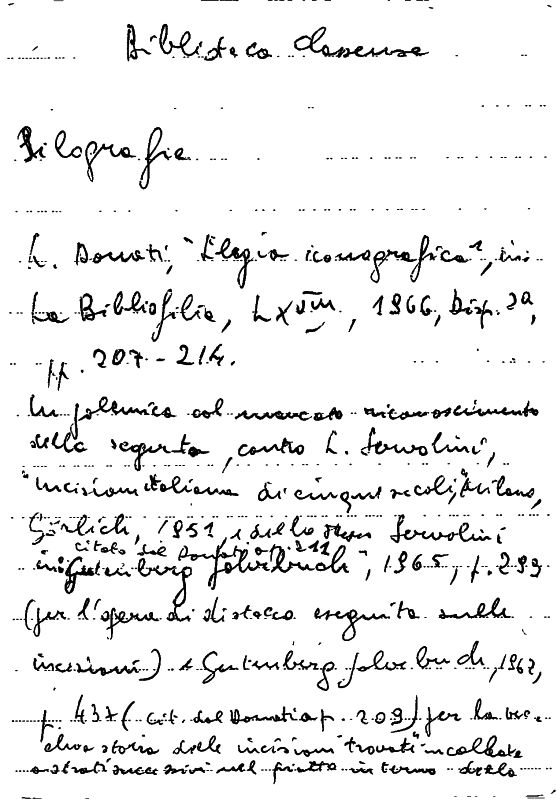 Biblioteca Classense
Silografie
L. Donati, "Elegia iconografica", in:
La Bibliofilia, LXVIII, 1966, Disp. 2a,
pp. 207-214.
In polemica col mancato riconoscimento
della segnatura, contro L. Servolini,
"Incisioni italiane di cinque secoli", Milano,
Görlich, 1951, e dello stesso Servolini
citato dal Donati a p. 211
in "Gutenberg Jahrbuch", 1965, p. 299
(per l'opera di distacco eseguita sulle
incisioni) e Gutenberg Jahrbuch, 1962,
p. 437 (cit. dal Donati a p. 209) per la
storia delle incisioni "trovate" incollate
a strati successivi nel piatto interno della